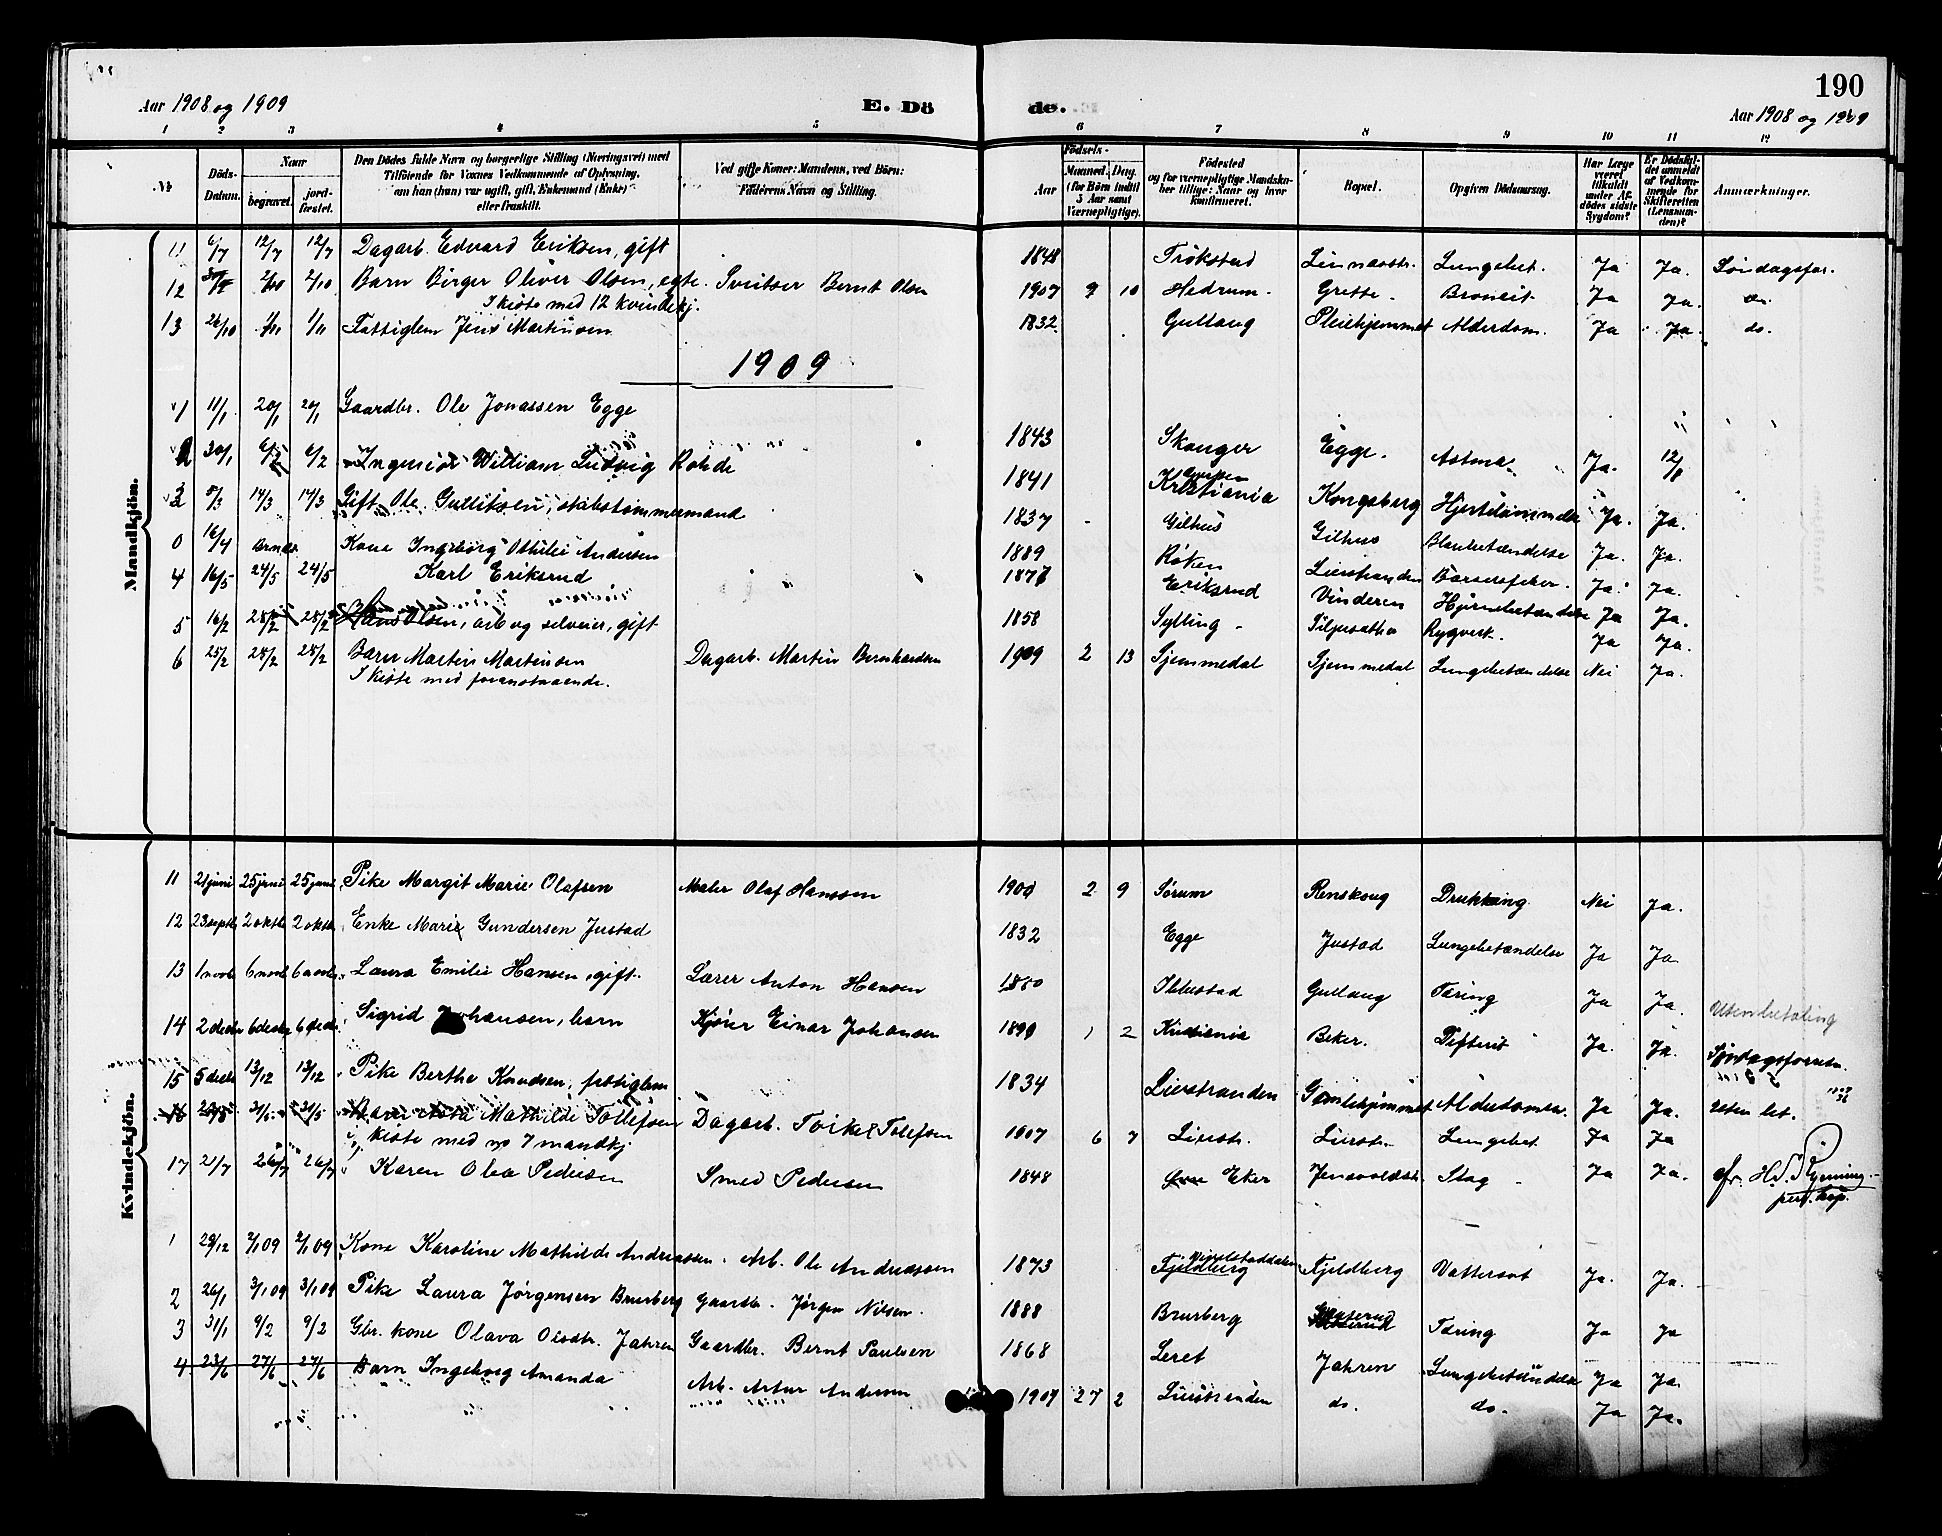 190
Aar 1908 og 1909
E. Dö
de.
Aar 1908 og 1909
1 2 3 4 5 6 7 8 9 10 11 12
№
Döds-Datum.
Naar
begravet.
jord-fæstet.
Den Dödes fulde Navn og borgerlige Stilling (Næringsvei) med
Tilföiende for Voxnes Vedkommende af Oplysning,
om han (hun) var ugift, gift, Enkemand (Enke)
eller fraskilt.
Ved gifte Koner: Mandens, ved Börn:
Faderens Navn og Stilling.
Födsels-
Aar
Maaned. Dag.
(for Börn indtil
5 Aar samt
Værnepligtige).
Födested
og for værnepligtige Mandska-
ber tillige: Naar og hvor
konfirmeret.
Bopæl.
Opgiven Dödsaarsag.
Har Læge
været
tilkaldt
under Af-
dödes sidste
Sygdom?
Er Dödsfal-
det anmeldt
af Vedkom-
mende for
Skifteretten
(Lensman-
den)?
Anmærkninger.
Mandkjön.
11 6/7 12/7 12/7 Dagarb. Edvard Eriksen, gift 1848 Trökstad Linnæsstr. Lungebet. Ja Ja. Söndagsfor.
12 2/10 2/10 Barn Birger Oliver Olsen, egte. Sveitser Bernt Olsen 1907 9 10 Hedrum Grette Bronkit Ja Ja. do
I kiste med 12 kvindekj.
13 26/10 1/11 1/11 Fattiglem Jens Martinsen 1832 Gullaug Pleiehjemmet Alderdom. Ja Ja. do.
1909
1 11/1 20/1 20/1 Gaardbr. Ole Jonassen Egge 1843 Skouger Egge. Astma Ja. 12/1
2 30/1 6/2 6/2 Ingeniör William Ludvig Rohde 1841 Kristiania Kongsberg Hjertelammelse Ja. Ja.
3 8/3 14/3 14/3 Gift Ole Gulliksen, skibstömmermand 1837 Gilhus Gilhus Ja. Ja.
0 16/4 Kone Ingeborg Othilie Andersen 1889 Röken Lierstranden Barselfeber. Ja. Ja.
4 16/5 24/5 24/5 Karl Eriksrud Eriksrud Vinderen Hjernebetændelse Ja Ja.
5 16/2 28/2 28/2 Hans Olsen, arb og selveier, gift 1858 Sylling Rygvert. Ja Ja.
6 25/2 28/2 28/2 Barn Martin Martinsen Dagarb. Martin Bernhardsen 1909 2 13 Gjemmedal Gjemmedal Lungebetændelse Nei Ja.
I kiste med foranstaaende.
Kvindekjön.
11 21 juni 25 juni 25 juni Pike Margit Marie Olafsen Maler Olaf Hanssen 1900 2 9 Sörum Renskoug Drukning Nei Ja.
12 23 septb 2 oktb 2 oktb Enke Marie Gundersen Justad 1832 Egge Justad Lungebetændelse Ja Ja
13 1 novb 6 novb 6 novb Laura Emilie Hansen, gift. Lærer Anton Hansen Gullaug Tæring Ja Ja.
14 2 decbr 6 decbr 6 decbr Sigrid Johansen, barn Kjörer Einar Johansen 1 2 Kristiania Beker. Difterit Ja. Ja. Uten betaling
15 5 decbr 13/12 13/12 Pike Berthe Knudsen, fattiglem 1834 Lierstranden Gamlehjemmet Alderdoms. Ja Ja. Söndagsforretn.
16 31/5 31/5 Barn Asta Mathilde Tollefsen Dagarb. Tolefsen 1907 6 7 Lierstr. Lierstr. Lungebet. Ja Ja uten bet.
kiste med no 7 mandkj
17 21/7 26/7 26/7 Karen Olea Pedersen Smed Pedersen 1848 Eker Slag Ja Ja. pers. kap.
1 29/12 2/1 09 2/1 09 Kone Karoline Mathilde Andreassen. Arb. Ole Andreassen 1873 Fjeldberg Fjeldberg Vattersot Ja. Ja.
2 26/1 3/1 09 3/1 09 Pike Laura Jörgensen Brusberg Gaardbr. Jörgen Nilsen. 1888 Brusberg Tæring Ja Ja
3 31/1 9/2 9/2 Gbr. kone Olava Olsdtr. Jahren Gaardbr. Bernt Paulsen 1868 Leret Jahren Lungebetændelse Ja Ja.
4 23/6 27/6 27/6 Barn Ingeborg Amanda Arb. Artur Andersen 1909 27 2 Lierstranden do. do. Ja Ja.